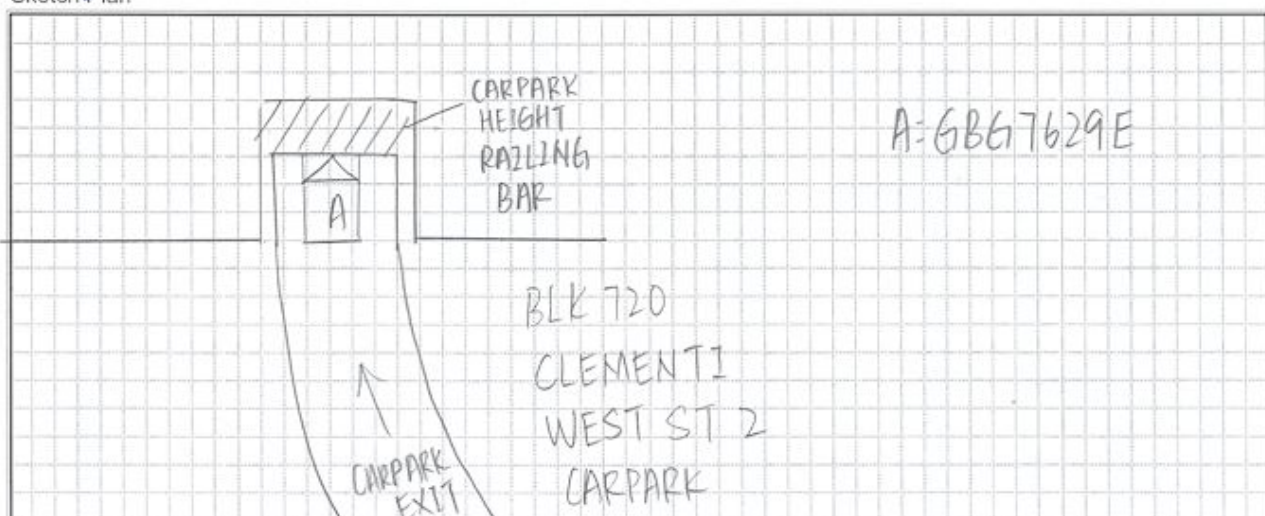 CARPARK
HEIGHT
RAILING
BAR
A: GBG7629E
A
BLK 720
CLEMENTI
WEST ST 2
CARPARK
CARPARK
EXIT